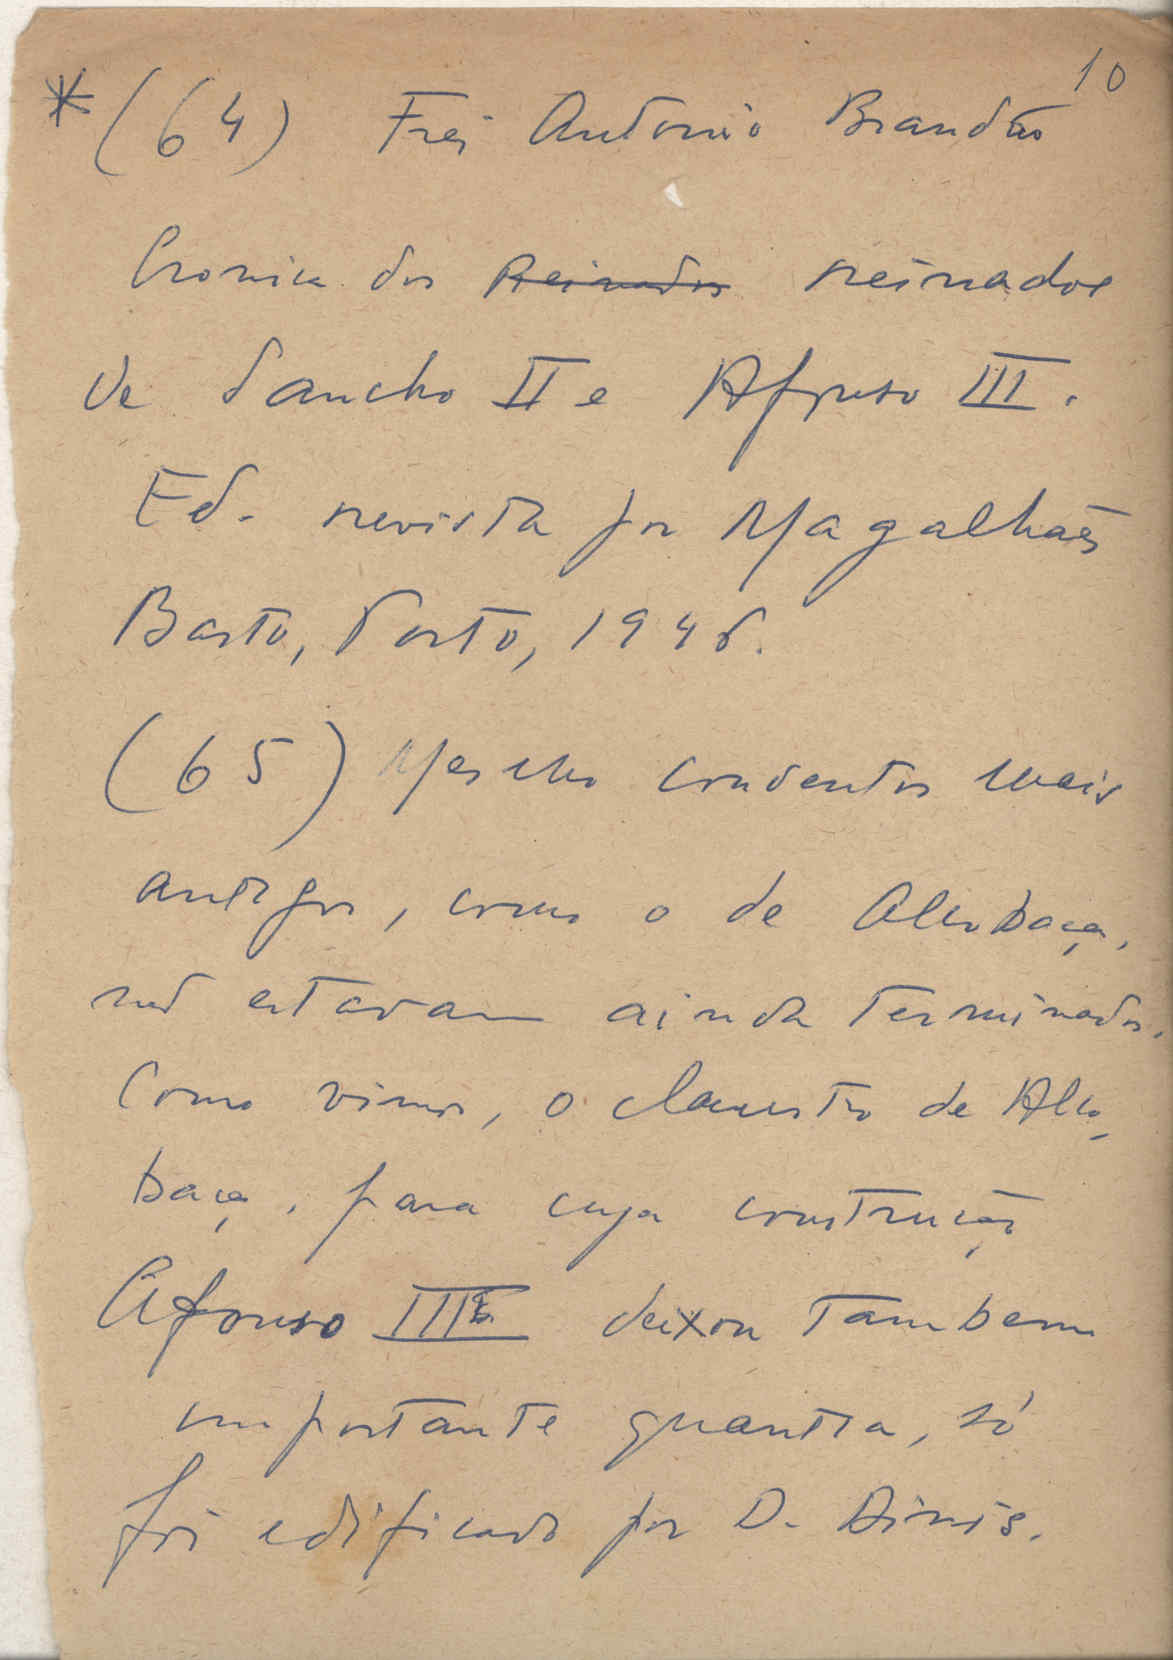 10
* (64) Frei Antonio Brandão
Cronica dos Reinados reinados
de Sancho II e Afonso III.
Ed. revista por Magalhães
Basto, Porto, 1946.
(65) Mesmo conventos mais
antigos, como o de Alcobaça,
não estavam ainda terminados.
Como vimos, o claustro de Alco
baça, para cuja construção
Afonso III deixou tambem
importante quantia, só
foi edificado por D. Dinis.